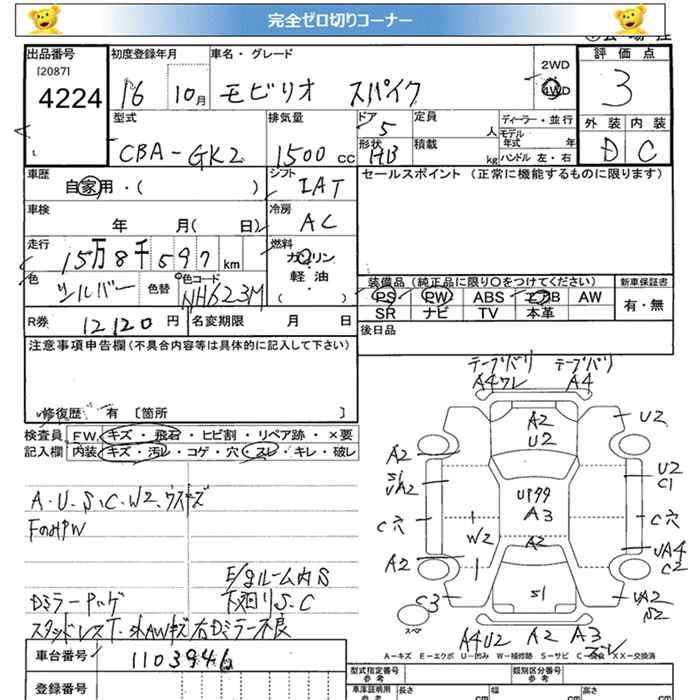 完全ゼロ切りコーナー
出品番号 初度登録年月 車名・グレード 評価点
[2087]
4224 16 10月 モビリオ スパイク 2WD 4WD 3
型式 排気量 ドア 5 定員 人 ディーラー・並行 外装 内装
CBA-GK2 1500 cc 形状 HB 積載 kg モデル年式 年式 ハンドル 左・右 D C
車歴 自家用・( ) シフト IAT セールスポイント (正常に機能するものに限ります)
車検 年 月( 日) 冷房 AC
走行 15万8千597 km 燃料 ガソリン・軽油 ( )
色 シルバー 色替 色コード NH623M
装備品 (純正品に限り○をつけてください) 新車保証書
PS PW ABS エアB AW 有・無
SR ナビ TV 本革
R券 12120 円 名変期限 月 日 後日品
注意事項申告欄(不具合内容等は具体的に記入して下さい)
修復歴 有 [箇所 ]
検査員 FW. キズ・飛石・ヒビ割・リペア跡・×要
記入欄 内装 キズ・汚レ・コゲ・穴・スレ・キレ・破レ
A・U・S・C・W2、ウスキズ
E/gルーム内S
Dミラーハゲ 下廻りS.C
スタッドレスT・社外AWキズ 右Dミラー不良
車台番号 1103946
登録番号
テープバリ テープバリ
A4ワレ A4
A2
U2
U2
A2
S1
UA2
U2
C1
C穴
UPタタ
A3
C穴
W2
A2
A2
UA4
C2
C3
S1
UA2
S2
スペア
A4U2 A2 A3
ズレ
A-キズ E-エクボ U-凹み W-補修跡 S-サビ C-腐食 XX-交換済
型式指定番号 参考 類別区分番号 参考
車庫証明用 参考 長さ cm 幅 cm 高さ cm